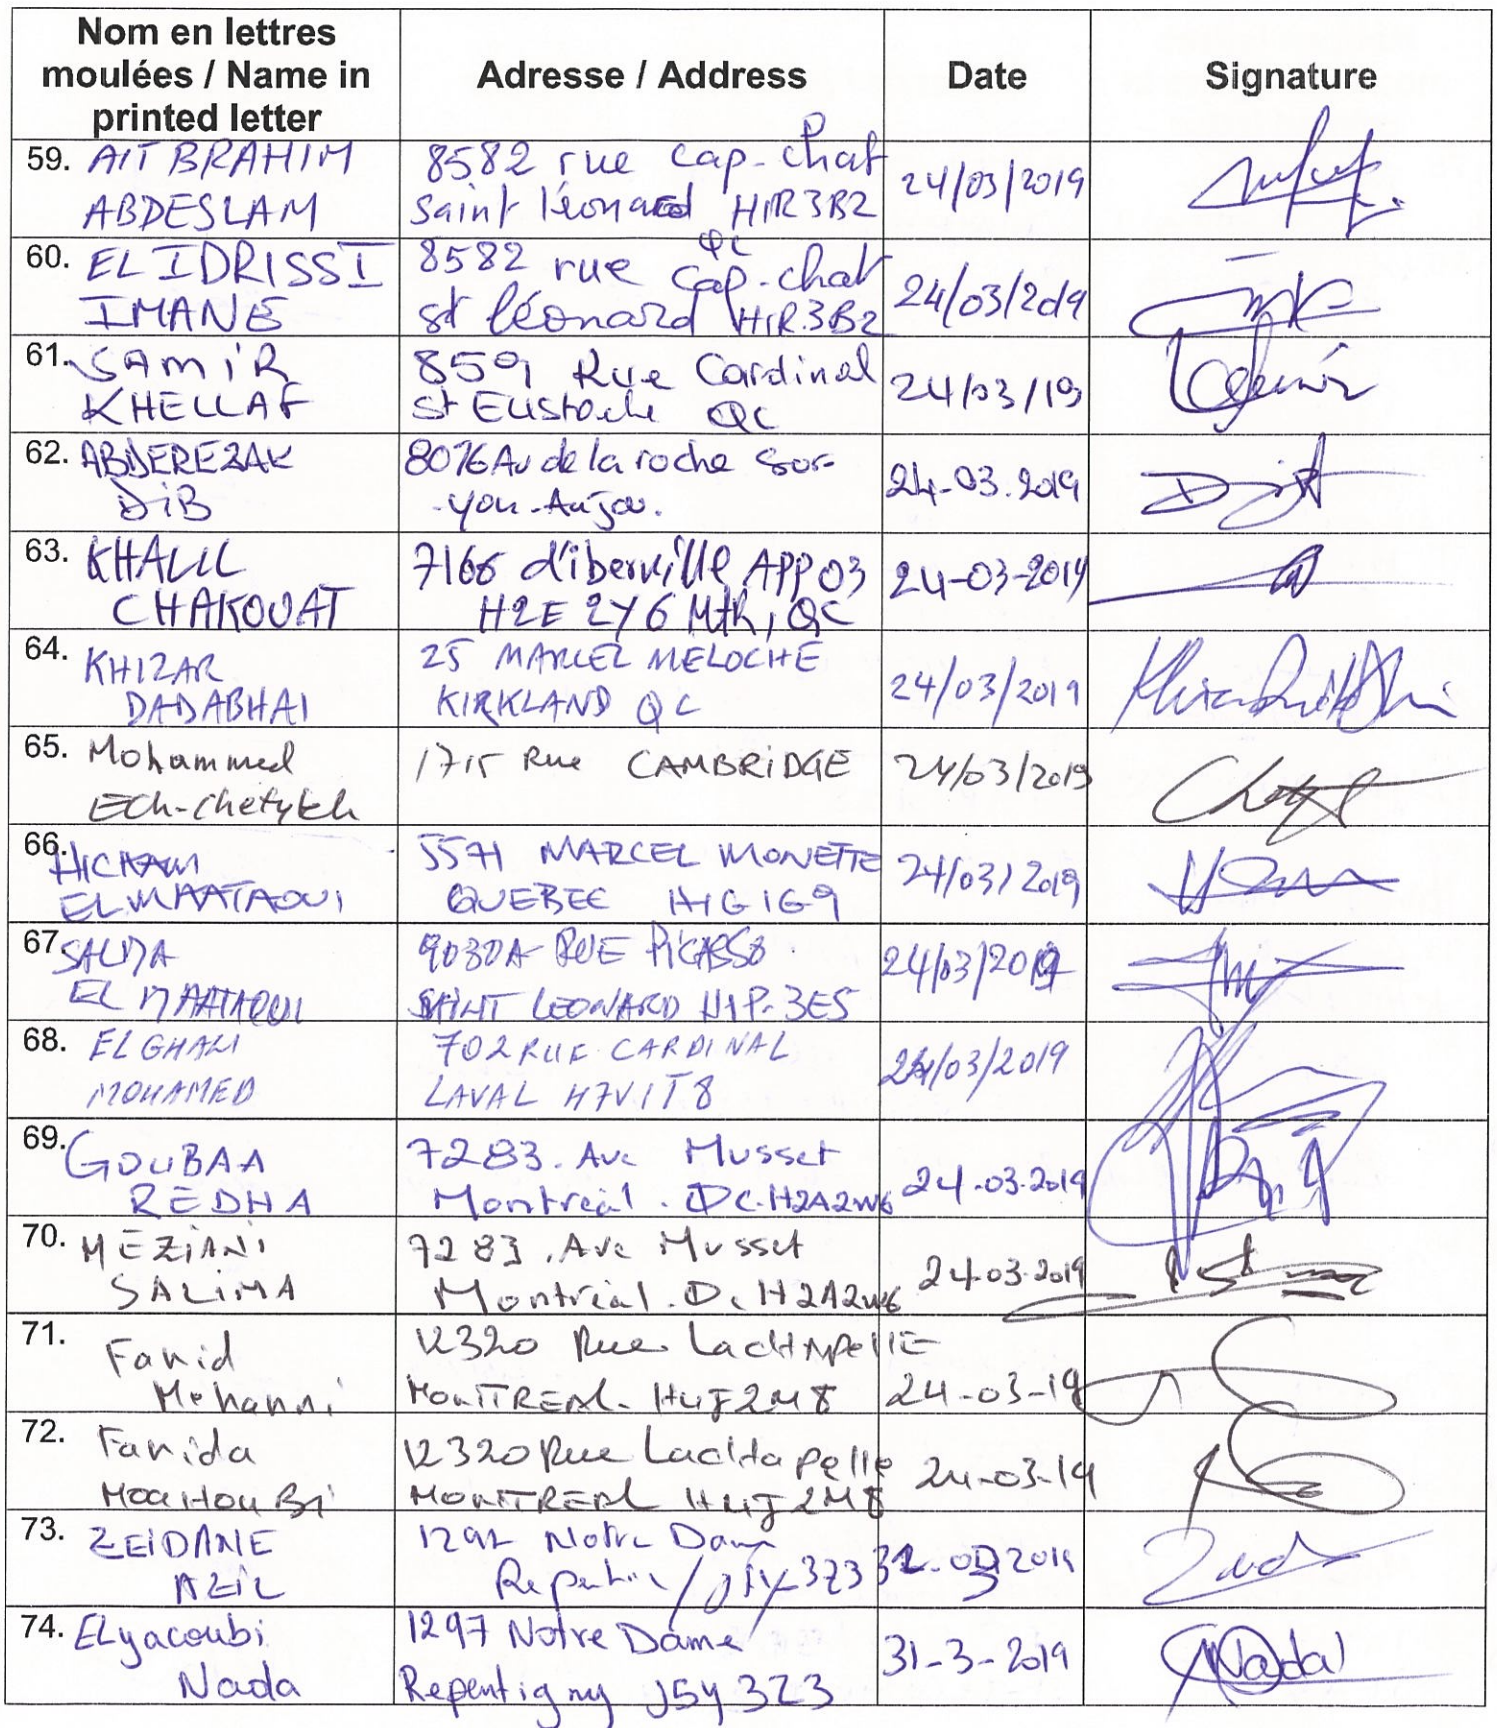 Nom en lettres
moulées / Name in
printed letter
Adresse / Address
Date
Signature
59. AIT BRAHIM
ABDESLAM
8582 rue Cap-chat
saint léonard H1R3B2
QC
24/03/2019
60. EL IDRISSI
IMANE
8582 rue Cap-chat
st léonard H1R3B2
24/03/2019
61. SAMIR
KHELLAF
859 Rue Cardinal
St Eustache QC
24/03/19
62. ABDEREZAK
DIB
8076 Av de la roche sur-
-yon-Anjou.
24-03.2019
63. KHALIL
CHAKOUAT
7166 d'iberville APP 03
H2E 2Y6 Mtl, QC
24-03-2019
64. KHIZAR
DADABHAI
25 MARCEL MELOCHE
KIRKLAND QC
24/03/2019
65. Mohammed
Ech-chetykh
1715 Rue CAMBRIDGE
24/03/2019
66. HICHAM
EL MAATAOUI
5571 MARCEL MONETTE
QUEBEC H1G1G9
24/03/2019
67 SALMA
EL MAATAOUI
9030A RUE PICASSO.
SAINT LEONARD H1P-3E5
24/03/2019
68. EL GHALI
MOHAMED
702 RUE CARDINAL
LAVAL H7V1T8
24/03/2019
69. GOUBAA
REDHA
7283. Ave Musset
Montréal. QC.H2A2W6
24-03-2019
70. MEZIANI
SALIMA
7283. Ave Musset
Montréal. Qc H2A2W6
24-03-2019
71. Farid
Mehanni
12320 Rue LacHApellE
MonTREAL. H4J2M8
24-03-19
72. Farida
MouHouBi
12320 Rue LacHapelle
MonTREAL H4J2M8
24-03-19
73. ZEIDANE
AZIZ
1297 Notre Dame
2019
74. ELyacoubi
Nada
1297 Notre Dame
Repentigny J5Y3Z3
31-3-2019
Nada